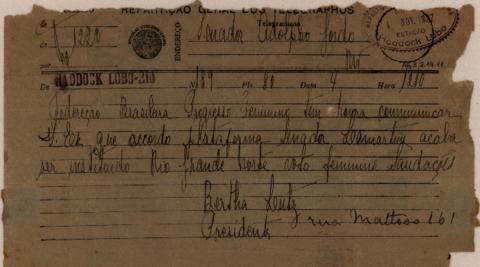 REPARTIÇÃO GERAL DOS TELEGRAPHOS
Telegramma
de 1220
ENDEREÇO
Senador Adolpho Gordo
Rio
por
NOV.
ESTAÇÃO
Haddock Lobo
De HADDOCK LOBO-RIO Nº 189 Pls. 80 Data 4 Hora 1210
Federação Brasileira Progresso Feminino tem honra communicar
V. Exa que accordo plataforma Senador Lamartine acaba
ser instituido Rio Grande Norte voto feminino Saudações
Bertha Lutz
Presidente rua Mattoso 161